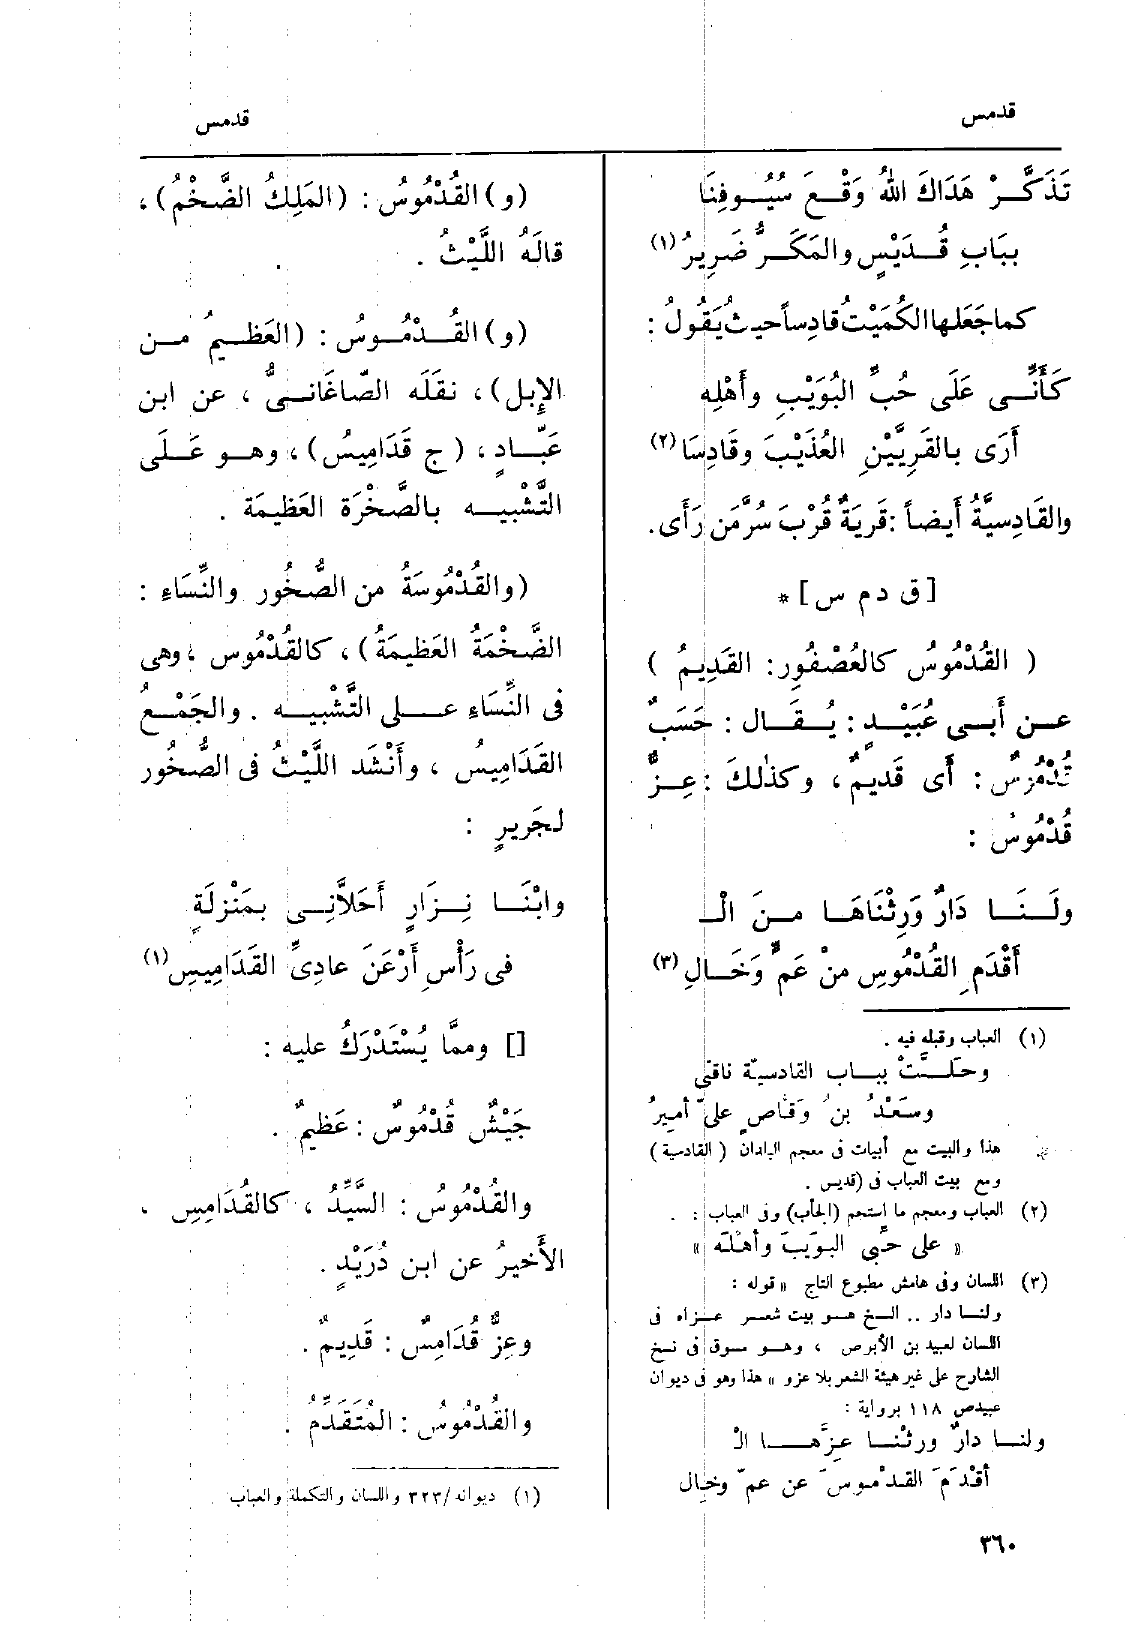 قدمس
قدمس
تَذَكَّرْ هَدَاكَ اللهُ وَقْعَ سُيُوفِنَا
بِبَابِ قُدَيْسٍ والمَكَرُّ ضَرِيرُ (١)
كما جَعَلها الكُمَيْتُ قادِساً حيث يَقُولُ :
كَأَنِّى عَلَى حُبِّ البُوَيْبِ وأَهْلِهِ
أَرَى بالقَرِيَّيْنِ العُذَيْبَ وقَادِسَا (٢)
والقَادِسِيَّةُ أَيضاً : قَرِيَةٌ قُرْبَ سُرَّمَن رَأَى .
[ ق د م س ] *
( القُدْمُوسُ كالعُصْفُورِ : القَدِيمُ )
عن أَبى عُبَيْدٍ : يُقَال : حَسَبٌ
قُدْمُوسٌ : أَى قَدِيمٌ ، وكذٰلكَ : عِزٌّ
قُدْمُوسٌ :
ولَنَا دَارٌ وَرِثْنَاهَا مِنَ الْـ
أَقْدَمِ القُدْمُوسِ مِنْ عَمٍّ وَخَالِ (٣)
(١) العباب وقبله فيه .
وحلَّتْ بباب القادسيّة ناقتى
وسَعْدُ بنُ وَقّاصٍ علىّ أميرُ
هذا والبيت مع أبيات فى معجم البلدان ( القادسية )
ومع بيت العباب فى (قديس .
(٢) العباب ومعجم ما استعجم (الجأب) وفى العباب : .
« على حُبِّى البويبَ وأهْلَه »
(٣) اللسان وفى هامش مطبوع التاج « قوله :
ولنا دار .. الخ هو بيت شعر عزاه فى
اللسان لعبيد بن الأبرص ، وهو مسوق فى نسخ
الشارح على غير هيئة الشعر بلا عزو » هذا وهو فى ديوان
عبيدص ١١٨ برواية :
ولنا دارٌ ورثْنا عِزَّها الْـ
أقْدَمَ القدْموسَ عن عمّ وخال
(و) القُدْمُوسُ : (المَلِكُ الضَّخْمُ) ،
قالَهُ اللَّيْثُ .
(و) القُدْمُوسُ : (العَظِيمُ من
الإِبل) ، نقلَه الصّاغَانىُّ ، عن ابن
عَبَّادٍ ، ( ج قَدَامِيسُ) ، وهو عَلَى
التَّشْبِيه بالصَّخْرَة العَظِيمَة .
(والقُدْمُوسَةُ من الصُّخُور والنِّسَاءِ :
الضَّخْمَةُ العَظِيمَةُ ) ، كالقُدْمُوس ، وهى
فى النِّسَاءِ على التَّشْبِيه . والجَمْعُ
القَدَامِيسُ ، وأَنْشَد اللَّيْثُ فى الصُّخُور
لجَرِيرٍ :
وابْنَا نِزَارٍ أَحَلاَّنِى بمَنْزِلَةٍ
فى رَأْسِ أَرْعَنَ عادِىِّ القَدَامِيسِ (١)
[] وممَّا يُسْتَدْرَكُ عليه :
جَيْشٌ قُدْمُوسٌ : عَظِيمٌ .
والقُدْمُوسُ : السَّيِّدُ ، كالقُدَامِسِ ،
الأَخيرُ عن ابن دُرَيْدٍ .
وعِزٌّ قُدَامِسٌ : قَدِيمٌ .
والقُدْمُوسُ : المُتَقَدِّمُ .
(١) ديوانه/٣٢٣ واللسان والتكملة والعباب
٣٦٠